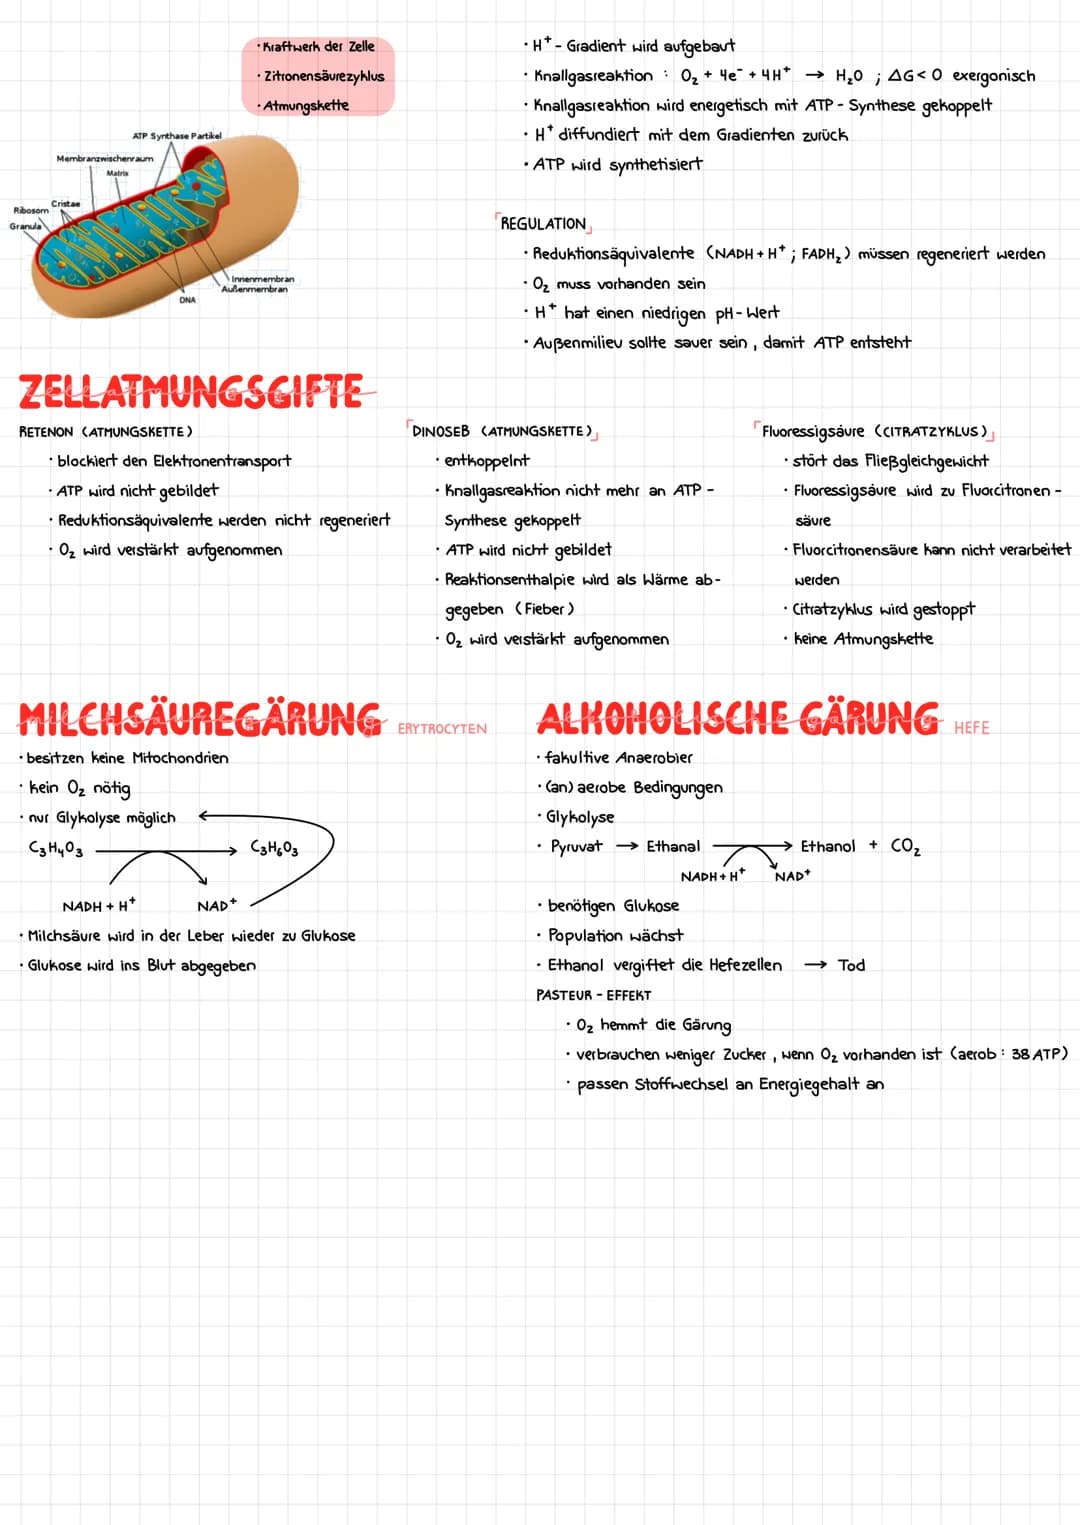 · Kraftwerk der Zelle
· Zitronensäurezyklus
· Atmungskette
ATP Synthase Partikel
Membranzwischenraum
Matrix
Cristae
Ribosom
Granula
Innenmembran
Außenmembran
DNA
· H⁺ - Gradient wird aufgebaut
· Knallgasreaktion : O₂ + 4e⁻ + 4H⁺ → H₂O ; ΔG < 0 exergonisch
· Knallgasreaktion wird energetisch mit ATP - Synthese gekoppelt
· H⁺ diffundiert mit dem Gradienten zurück
· ATP wird synthetisiert
REGULATION
· Reduktionsäquivalente (NADH + H⁺ ; FADH₂) müssen regeneriert werden
· O₂ muss vorhanden sein
· H⁺ hat einen niedrigen pH - Wert
· Außenmilieu sollte sauer sein , damit ATP entsteht
ZELLATMUNGSGIFTE
zellatmungsgifte
RETENON (ATMUNGSKETTE)
· blockiert den Elektronentransport
· ATP wird nicht gebildet
· Reduktionsäquivalente werden nicht regeneriert
· O₂ wird verstärkt aufgenommen
DINOSEB (ATMUNGSKETTE)
· entkoppelnt
· Knallgasreaktion nicht mehr an ATP -
Synthese gekoppelt
· ATP wird nicht gebildet
· Reaktionsenthalpie wird als Wärme ab-
gegeben (Fieber)
· O₂ wird verstärkt aufgenommen
Fluoressigsäure ((CITRATZYKLUS)
· stört das Fließgleichgewicht
· Fluoressigsäure wird zu Fluorcitronen -
säure
· Fluorcitronensäure kann nicht verarbeitet
werden
· Citratzyklus wird gestoppt
· keine Atmungskette
MILCHSÄUREGÄRUNG ERYTROCYTEN
milchsäuregärung
· besitzen keine Mitochondrien
· kein O₂ nötig
· nur Glykolyse möglich
C₃H₄O₃ → C₃H₆O₃
NADH + H⁺ NAD⁺
· Milchsäure wird in der Leber wieder zu Glukose
· Glukose wird ins Blut abgegeben
ALKOHOLISCHE GÄRUNG HEFE
alkoholische gärung
· fakultive Anaerobier
· (an) aerobe Bedingungen
· Glykolyse
· Pyruvat → Ethanal → Ethanol + CO₂
NADH + H⁺ NAD⁺
· benötigen Glukose
· Population wächst
· Ethanol vergiftet die Hefezellen → Tod
PASTEUR - EFFEKT
· O₂ hemmt die Gärung
· verbrauchen weniger Zucker , wenn O₂ vorhanden ist (aerob : 38 ATP)
· passen Stoffwechsel an Energiegehalt an